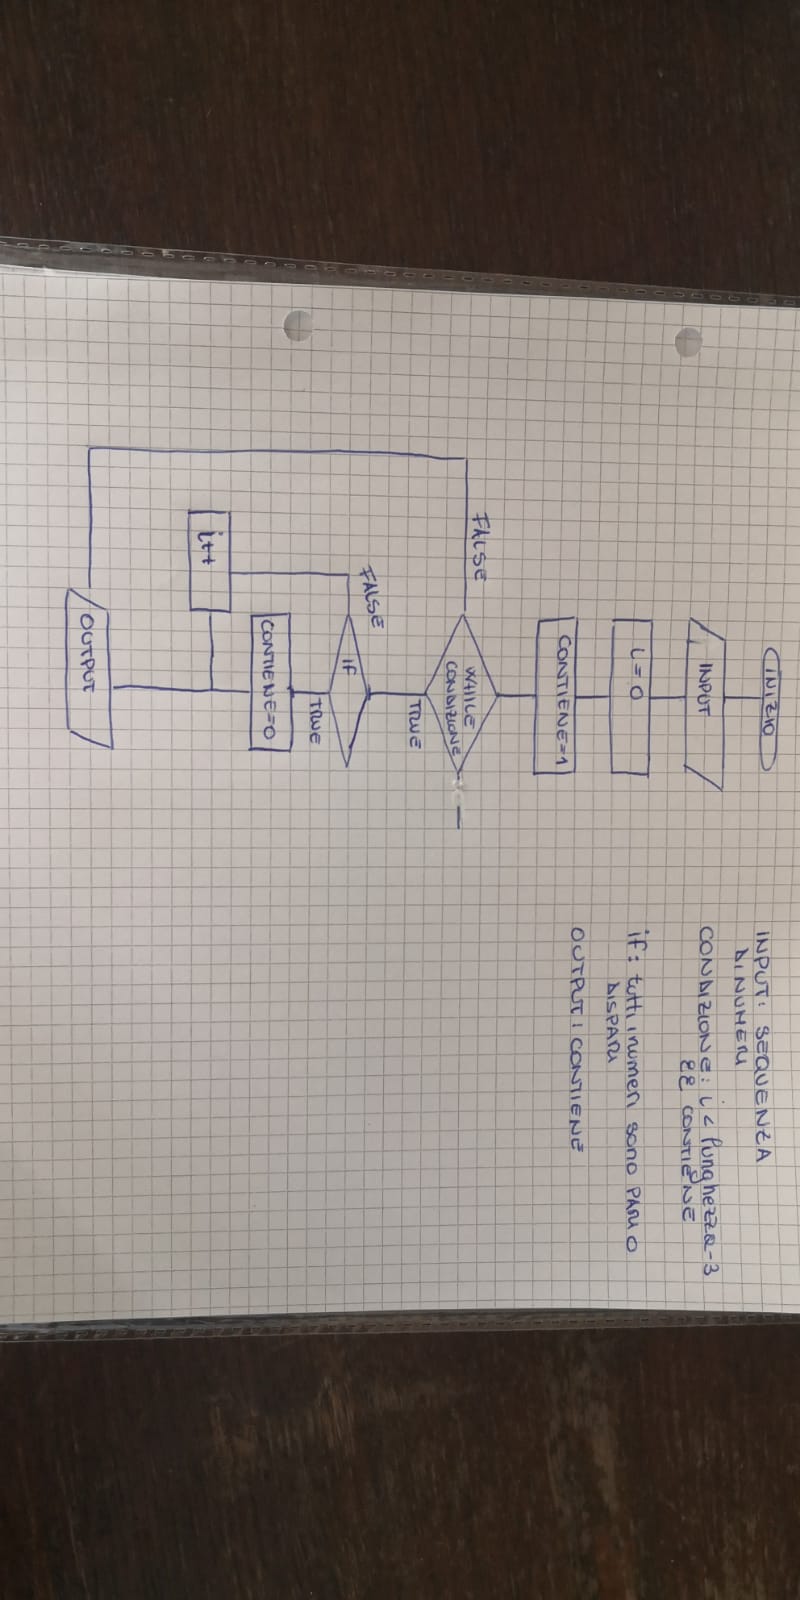 INIZIO
INPUT
i=0
CONTIENE=1
WHILE
CONDIZIONE
FALSE
TRUE
IF
FALSE
TRUE
CONTIENE=0
i++
OUTPUT
INPUT: SEQUENZA
DI NUMERI
CONDIZIONE: i < lunghezza-3
&& CONTIENE
if: tutti i numeri sono PARI O
DISPARI
OUTPUT: CONTIENE